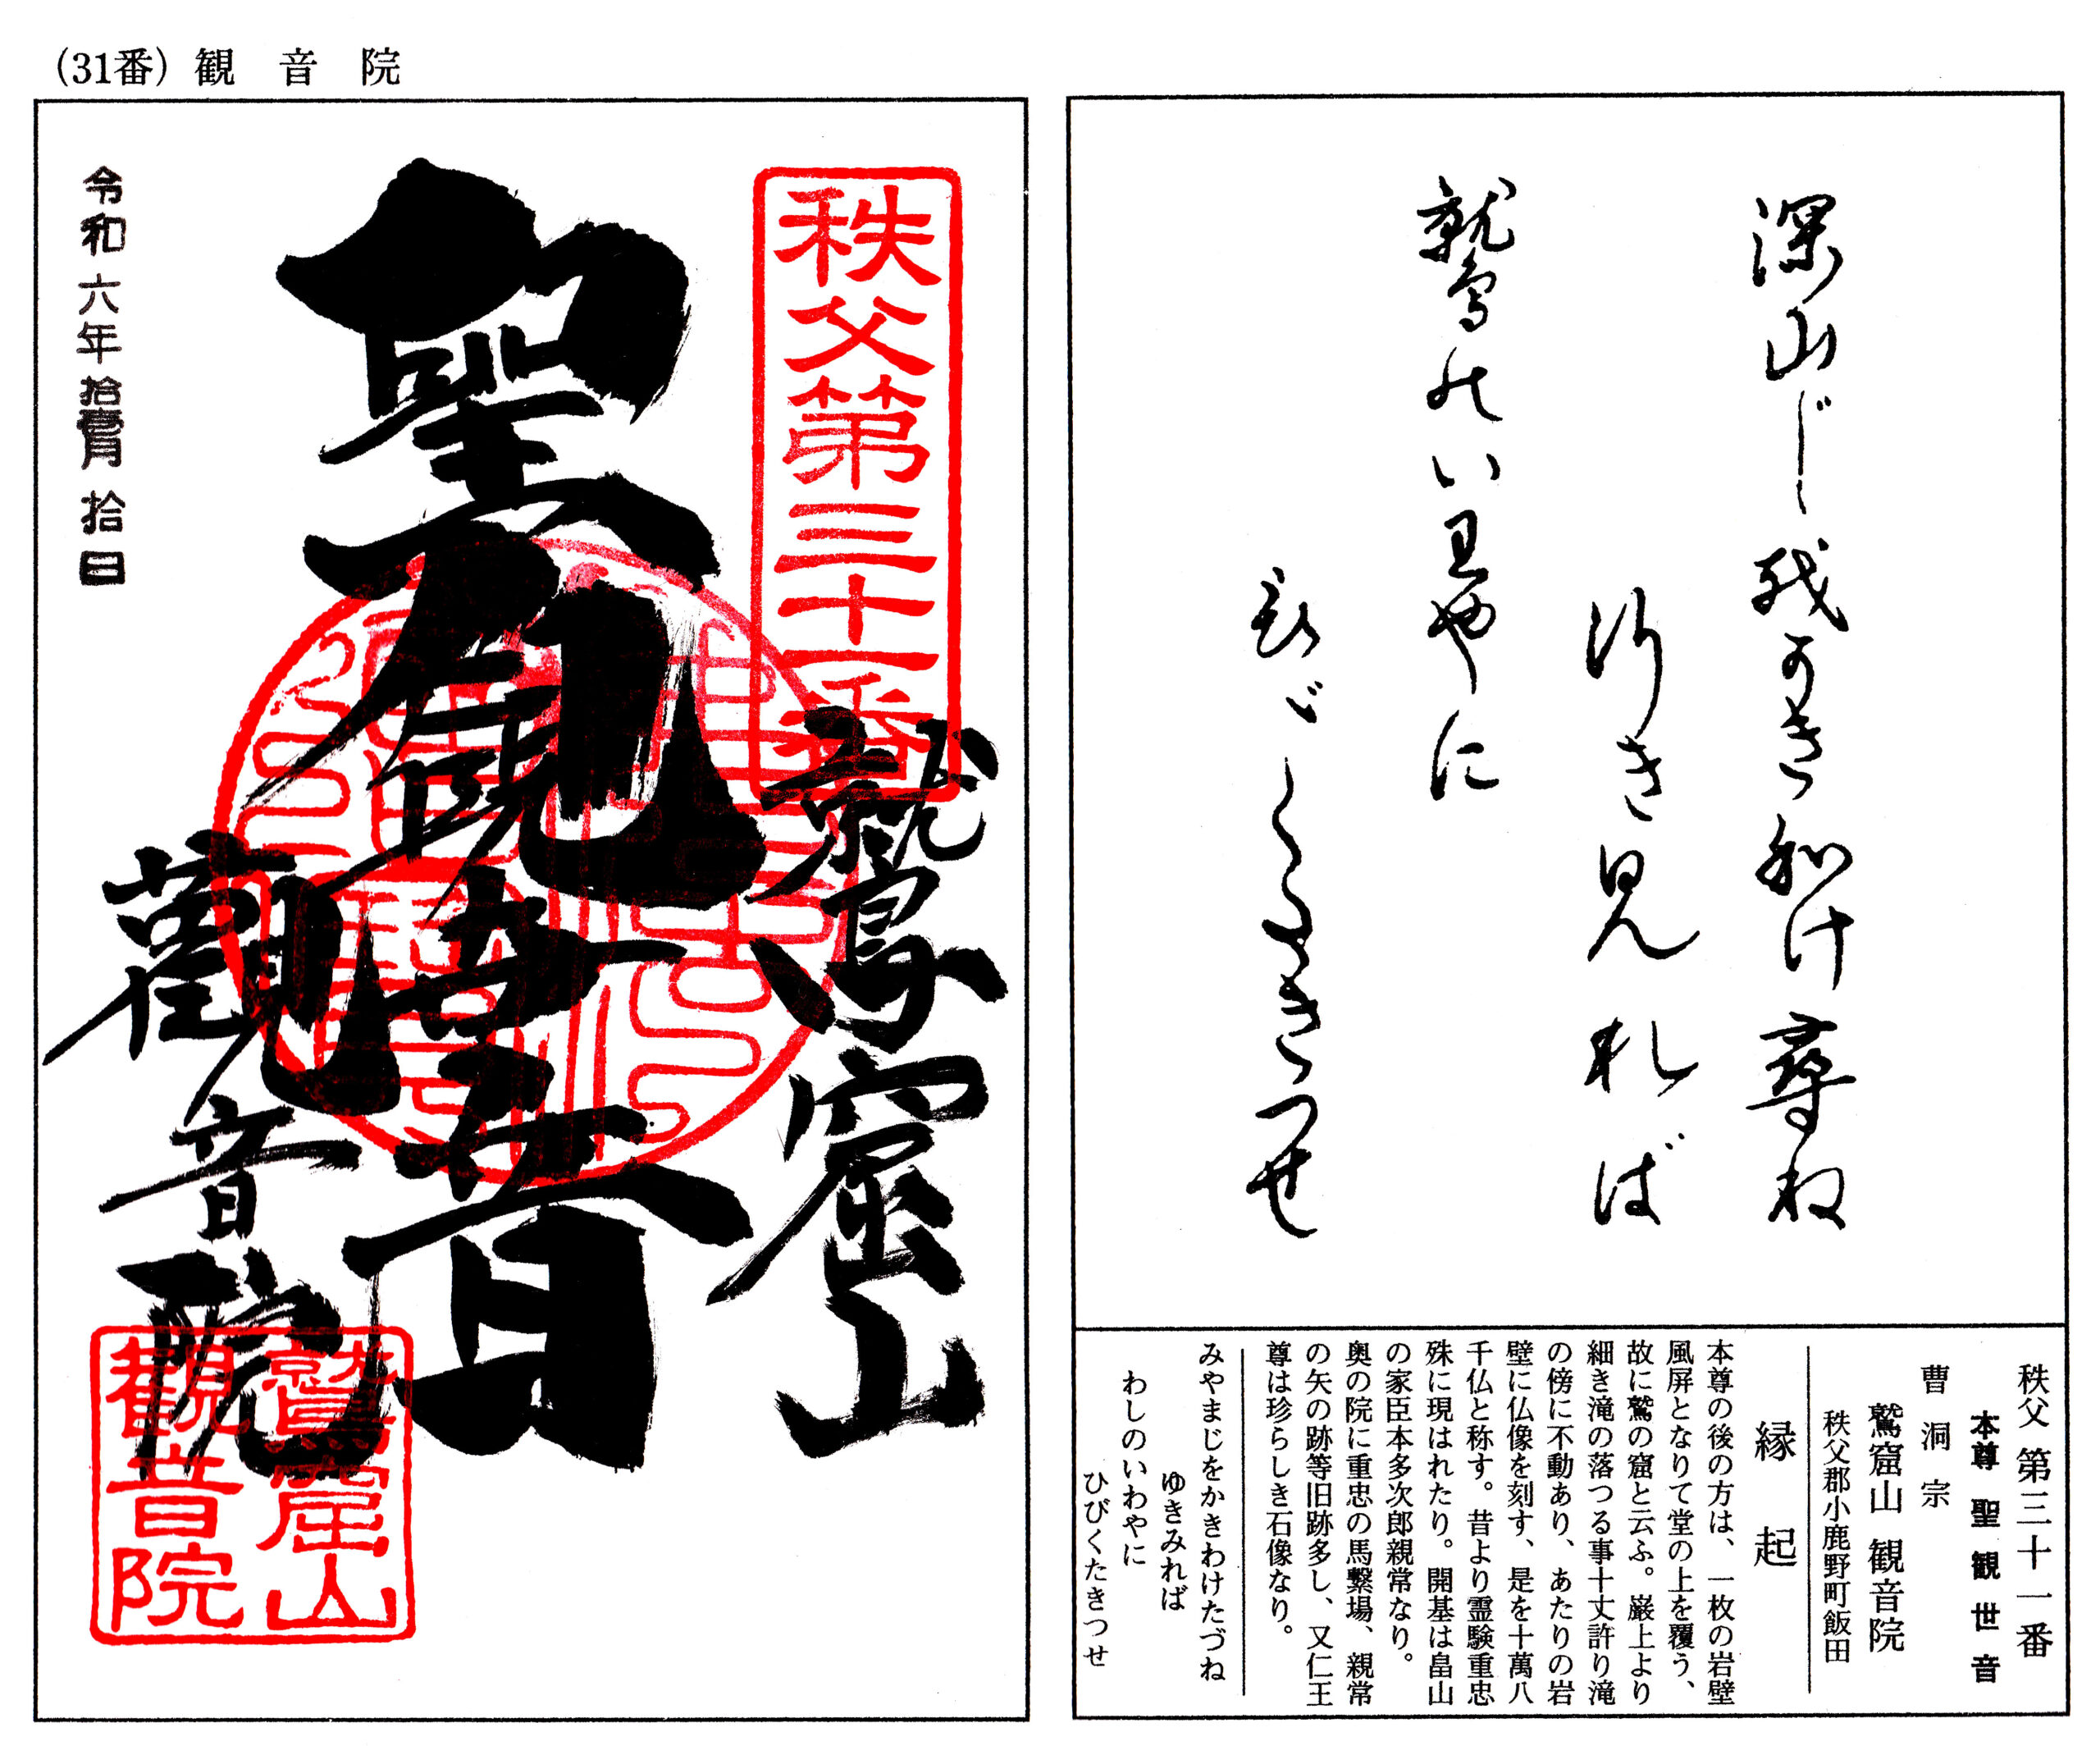 (31番) 観音院
秩父第三十一番
鷲窟山
聖観世音
観音院
令和六年拾壹月拾日
鷲窟山
観音院
深山じを かき和け尋ね
行き見れば
鷲のいわやに
ひびくたきつせ
秩父 第三十一番
本尊 聖観世音
曹洞宗
鷲窟山 観音院
秩父郡小鹿野町飯田
縁起
本尊の後の方は、一枚の岩壁
風屏となりて堂の上を覆う、
故に鷲の窟と云ふ。巌上より
細き滝の落つる事十丈許り滝
の傍に不動あり、あたりの岩
壁に仏像を刻す、是を十萬八
千仏と称す。昔より霊験重忠
殊に現はれたり。開基は畠山
の家臣本多次郎親常なり。
奥の院に重忠の馬繋場、親常
の矢の跡等旧跡多し、又仁王
尊は珍らしき石像なり。
みやまじをかきわけたづね
ゆきみれば
わしのいわやに
ひびくたきつせ